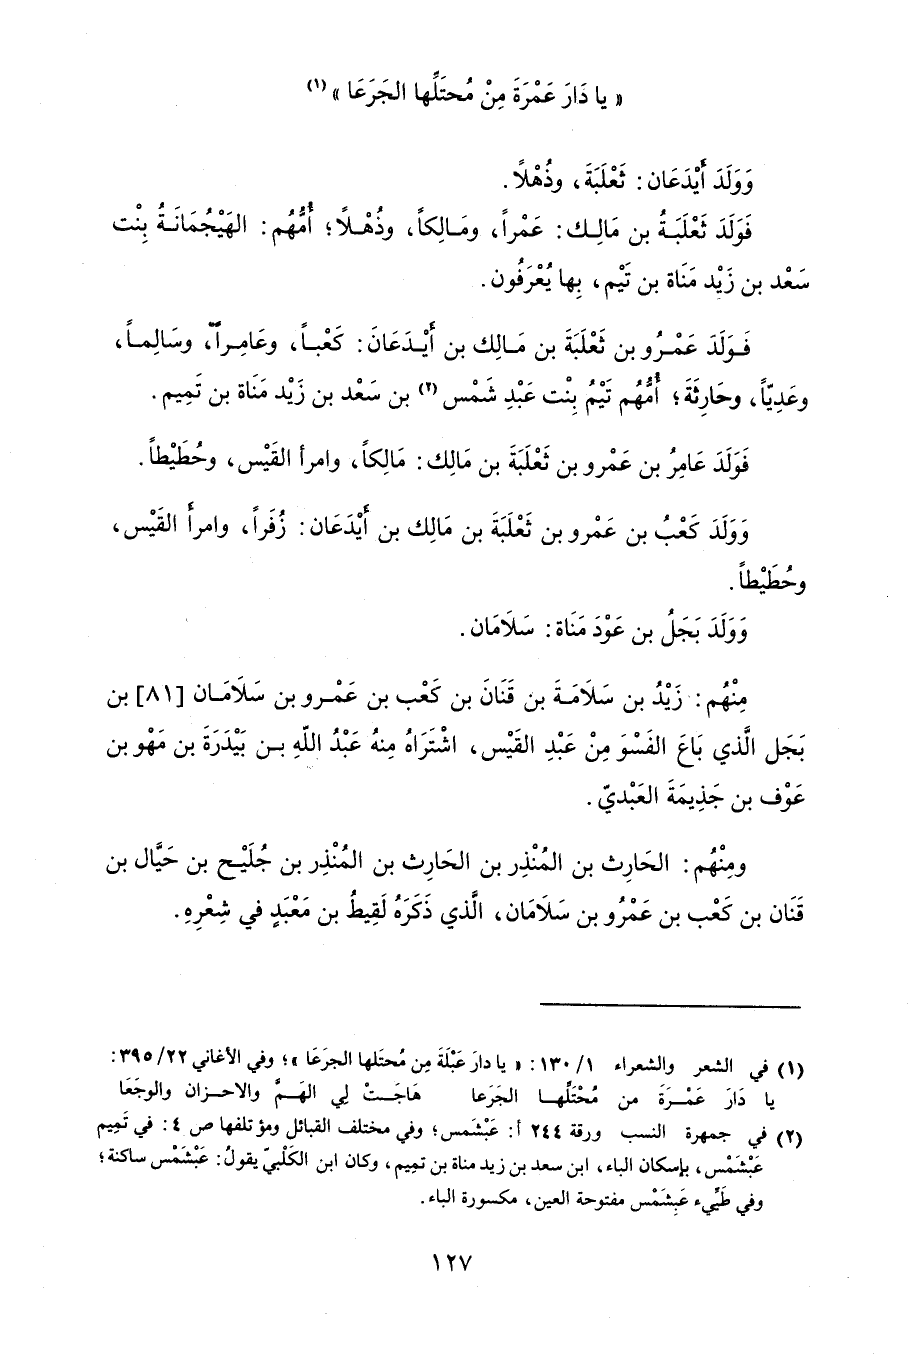 « يا دَارَ عَمْرَةَ مِنْ مُحتَلِّها الجَرَعَا » (١)
وَوَلَدَ أَيْدَعَان: ثَعْلَبَةَ، وذُهْلاً.
فَوَلَدَ ثَعْلَبَةُ بن مَالِك: عَمْراً، ومَالِكاً، وذُهْلاً؛ أُمُّهُم: الهَيْجُمَانَةُ بِنْت
سَعْد بن زَيْد مَنَاة بن تَيْم، بِها يُعْرَفُون.
فَوَلَدَ عَمْرو بن ثَعْلَبَةَ بن مَالِك بن أَيْدَعَانَ: كَعْباً، وعَامِراً، وسَالِماً،
وعَدِيّاً، وحَارِثَةَ؛ أُمُّهُم تَيْمُ بِنْت عَبْدِ شَمْس (٢) بن سَعْد بن زَيْد مَنَاة بن تَمِيم.
فَوَلَدَ عَامِرُ بن عَمْرو بن ثَعْلَبَةَ بن مَالِك: مَالِكاً، وامرأ القَيْس، وحُطَيْطاً.
وَوَلَدَ كَعْبُ بن عَمْرو بن ثَعْلَبَةَ بن مَالِك بن أَيْدَعَان: زُفَراً، وامرأَ القَيْس،
وحُطَيْطاً.
وَوَلَدَ بَجَلُ بن عَوْدَ مَنَاة: سَلَامَان.
مِنْهُم: زَيْدُ بن سَلَامَةَ بن قَنَانَ بن كَعْب بن عَمْرو بن سَلَامَان [٨١] بن
بَجَل الَّذي بَاعَ الفَسْوَ مِنْ عَبْدِ القَيْس، اشْتَرَاهُ مِنهُ عَبْدُ اللّهِ بن بَيْدَرَةَ بن مَهْو بن
عَوْف بن جَذِيمَةَ العَبْديّ.
ومِنْهُم: الحَارِث بن المُنْذِر بن الحَارِث بن المُنْذِر بن جُلَيْح بن حَيَّال بن
قَنَان بن كَعْب بن عَمْرُو بن سَلَامَان، الَّذي ذَكَرَهُ لَقِيطُ بن مَعْبَدٍ في شِعْرِهِ.
(١) في الشعر والشعراء ١/ ١٣٠: « يا دارَ عَبْلَةَ مِن مُحتَلها الجرَعَا »؛ وفي الأغاني ٢٢/ ٣٩٥:
يا دَارَ عَمْرَةَ من مُحْتَلِّها الجَرَعا هَاجَتْ لِي الهَمَّ والاحزان والوجَعَا
(٢) في جمهرة النسب ورقة ٢٤٤ أ: عَبْشَمس؛ وفي مختلف القبائل ومؤتلفها ص ٤: في تَمِيم
عَبْشَمْس، بإسكان الباء، ابن سعد بن زيد مناة بن تميم، وكان ابن الكَلْبيّ يقولُ: عَبْشَمْس ساكنة؛
وفي طَيِّيء عَبِشَمْس مفتوحة العين، مكسورة الباء.
١٢٧